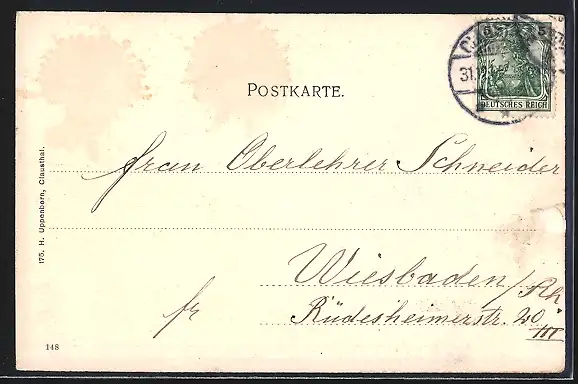 5 5
31.12
DEUTSCHES REICH
POSTKARTE.
Frau Oberlehrer Schneider
Wiesbaden/Rh
fr
Rüdesheimerstr. 20
III
175. H. Uppenborn, Clausthal.
148